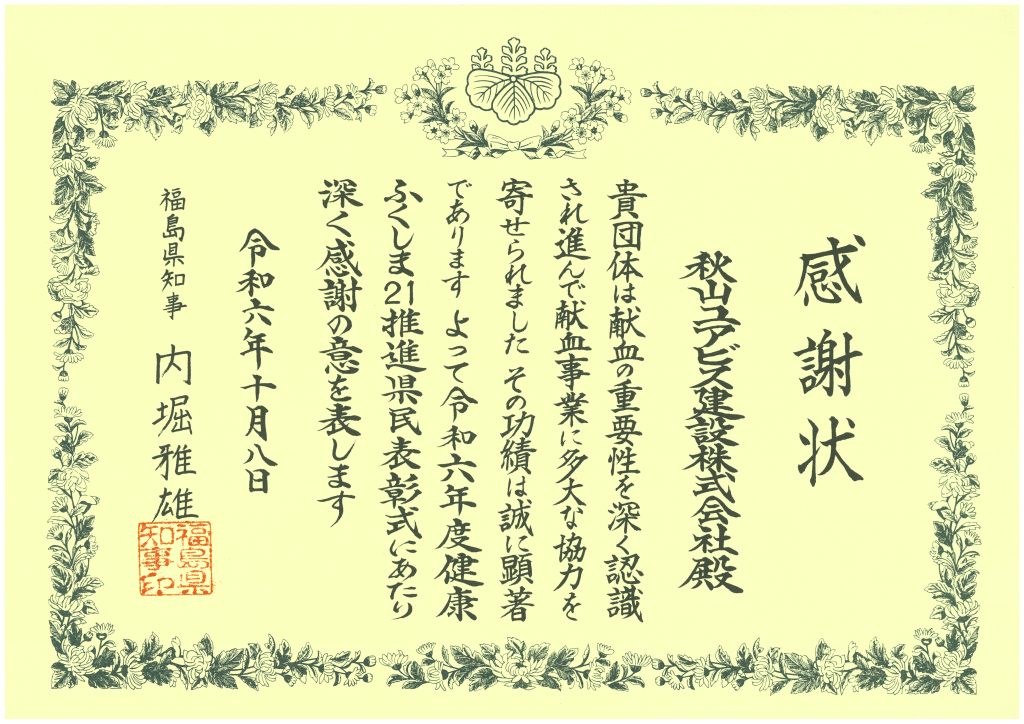 感謝状
秋山ユアビス建設株式会社殿
貴団体は献血の重要性を深く認識
され進んで献血事業に多大な協力を
寄せられました その功績は誠に顕著
であります よって令和六年度健康
ふくしま21推進県民表彰式にあたり
深く感謝の意を表します
令和六年十月八日
福島県知事 内堀雅雄
福島県
知事印